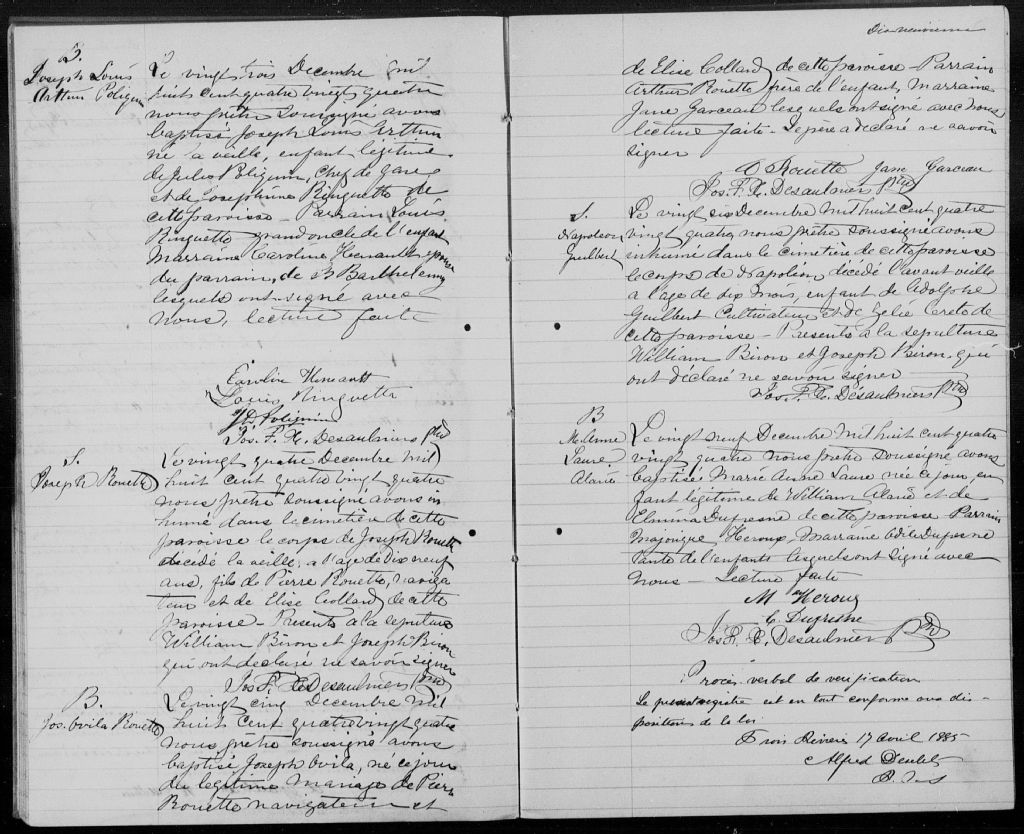 B.
Joseph Louis
Arthur Poliquin
Le vingt trois Decembre mil
huit cent quatre vingt quatre
nous prêtre soussigné avons
baptisé Joseph Louis Arthur
né la veille, enfant légitime
de Jules Poliquin, Chef de gare
et de Josephine Ringuette de
cette paroisse - Parrain Louis
Ringuette grand oncle de l'enfant
Marraine Caroline Herault épouse
du parrain, de St Barthelemy
lesquels ont signé avec
nous, lecture faite
Caroline Heneault
Louis Ringuette
J. D. Poliquin
Jos. F. X. Desaulniers Ptre
S.
Joseph Rouette
Le vingt quatre Decembre mil
huit cent quatre vingt quatre
nous prêtre soussigné avons in
humé dans le cimetière de cette
paroisse le corps de Joseph Rouette
décédé la veille, a l'age de Dix neuf
ans, fils de Pierre Rouette, naviga
teur et de Elise Collard de cette
paroisse - Presents a la sepulture
William Biron et Joseph Biron
qui ont declare ne savoir signer
Jos. F. X. Desaulniers Ptre
B.
Jos. Ovila Rouette
Le vingt cinq Decembre mil
huit cent quatre vingt quatre
nous prêtre soussigné avons
baptisé Joseph Ovila, né ce jour
du legitime mariage de Pierre
Rouette navigateur et
Dix-neuvième
de Elise Collard de cette paroisse Parrain
Arthur Rouette frère de l'enfant, Marraine
Jane Garceau lesquels ont signé avec nous
lecture faite - Le père a déclaré ne savoir
signer
O Rouette Jane Garceau
Jos. F. X. Desaulniers Ptre
S.
Napoleon
Guilbert
Le vingt six Decembre mil huit cent quatre
vingt quatre, nous prêtre soussigné avons
inhumé dans le cimetière de cette paroisse
le corps de Napoléon décédé l'avant veille
a l'age de dix mois, enfant de Adolphe
Guilbert Cultivateur et de Zelie de
cette paroisse - Presents a la sepulture
William Biron et Joseph Biron qui
ont déclaré ne savoir signer
Jos. F. X. Désaulniers Ptre
B
M. Anne
Laure
Alarie
Le vingt neuf Decembre mil huit cent quatre
vingt quatre nous prêtre soussigné avons
baptisé Marie Anne Laure née ce jour, en
fant légitime de William Alarie et de
Elmina Dufresne de cette paroisse Parrain
Majorique Heroux, Marraine Edée Dufresne
Tante de l'enfant lesquels ont signé avec
nous - Lecture faite
M Heroux
E. Dufresne
Jos. F. X. Desaulniers Ptre
Procès verbal de vérification
Le présent registre est en tout conforme aux dis-
positions de la loi
Trois Rivières 17 avril 1885
Alfred